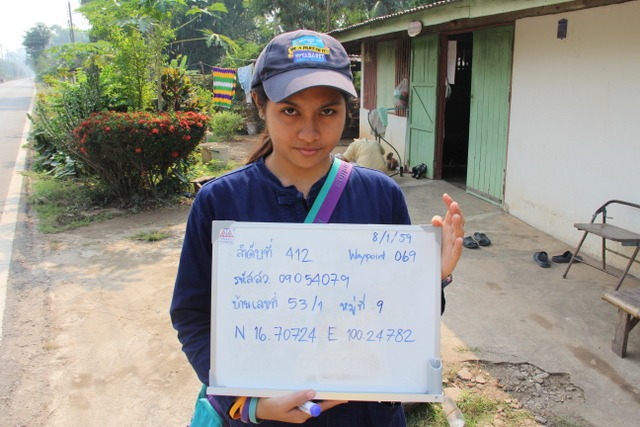 8/1/59
ลำดับที่ 412 Waypoint 069
รหัสสว. 09054079
บ้านเลขที่ 53/1 หมู่ที่ 9
N 16.70724 E 100.24782